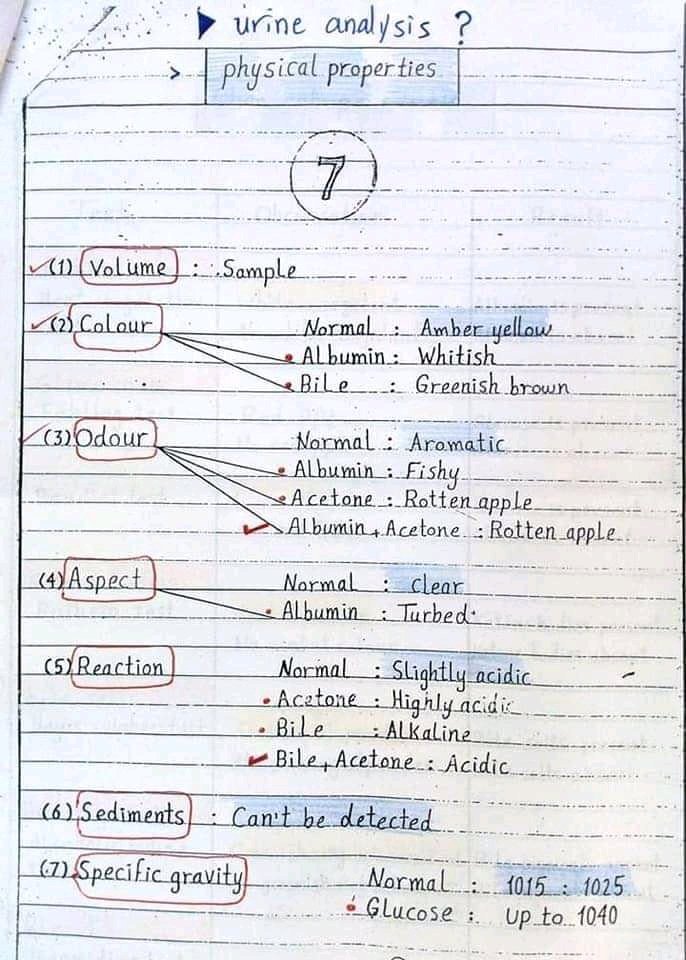 urine analysis ?
> physical properties
7
(1) Volume : Sample
(2) Colour Normal : Amber yellow
Albumin : Whitish
Bile : Greenish brown
(3) Odour Normal : Aromatic
Albumin : Fishy
Acetone : Rotten apple
Albumin + Acetone : Rotten apple
(4) Aspect Normal : clear
Albumin : Turbed
(5) Reaction Normal : Slightly acidic
Acetone : Highly acidic
Bile : Alkaline
Bile + Acetone : Acidic
(6) Sediments : Can't be detected
(7) Specific gravity Normal : 1015 : 1025
Glucose : up to 1040